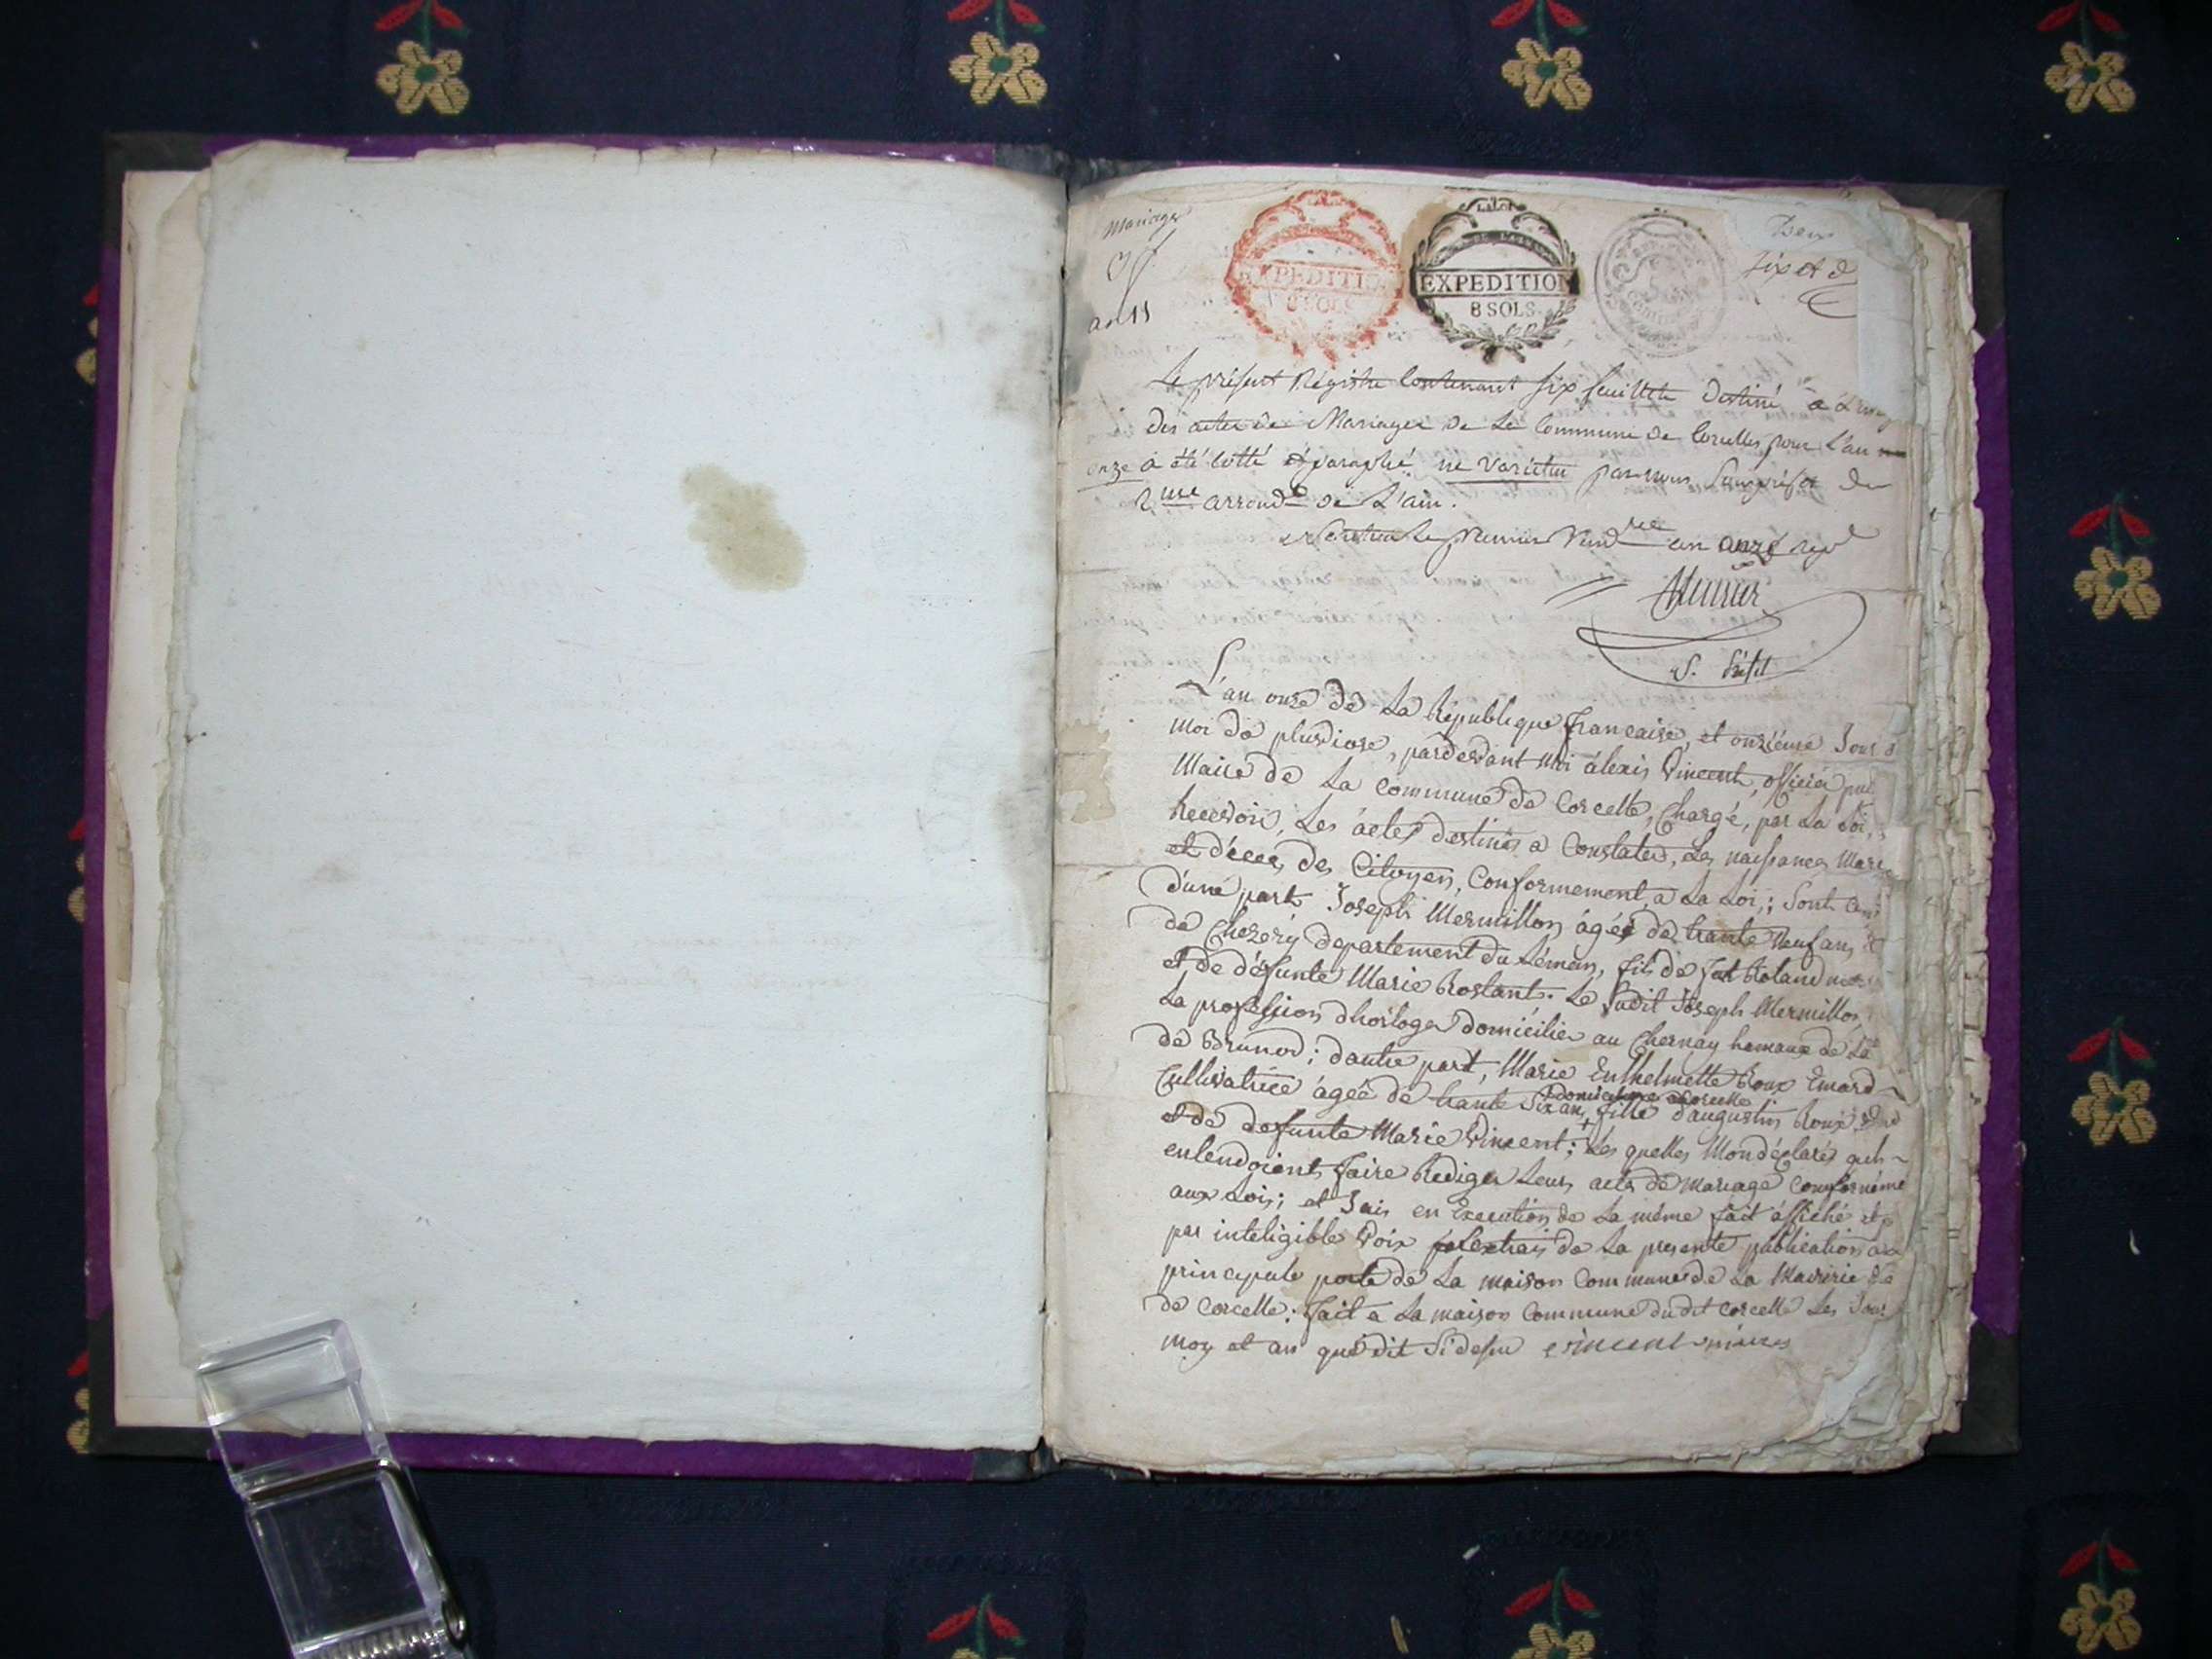 Mariages
an 11
EXPEDITION
8 SOLS
LA LOI
EXPEDITION
8 SOLS.
Deux
Six et d
Le présent Régistre contenant six feuillets destiné à
des actes de Mariages de la Commune de Corcelles pour l'an
onze a été cotté et paraphé ne varietur par nous Souspréfet du
2me arrondt de L'ain.
le premier Vendre an onze
S. Préfet
L'an onze de La République francaise, et onziéme Jour d
moi de pluviose, pardevant Moi aléxis Vincent, officiér pu
Maire de La Commune de Corcelle, Chargé, par La Loi,
Recevoir, Les actes destinés a Constater, Les naissances Mari
et décés des Citoyen, Conformement a La Loi; Sont
d'une part Joseph Mermillon, agée de trante Neuf ans
de Chezery departement du Léman, fils de Roland
et de défunte Marie Rostant. Le Sudit Joseph Mermillon
La profession dhorloger domicilier au Chernay hamaux de La
de Brunod; dautre part, Marie Enthelmette Roux Emard
domicilier a Corcelle
Cultivatrice agée de trante Six ans, + fille daugustin Roux
et de defunte Marie Vincent; Les quelles Mon déclarés quils
entendoient faire Rediger Leurs acte de Mariage Conforméme
aux Lois; et Jais en Execution de La même fait affiché et
par inteligible Voix de La presente publication a
principale porte de La maison Commune de La Mairie de
de Corcelle: fait a La maison Commune dudit Corcelle Les Jour
moy et an que dit Si desu Vincent maire